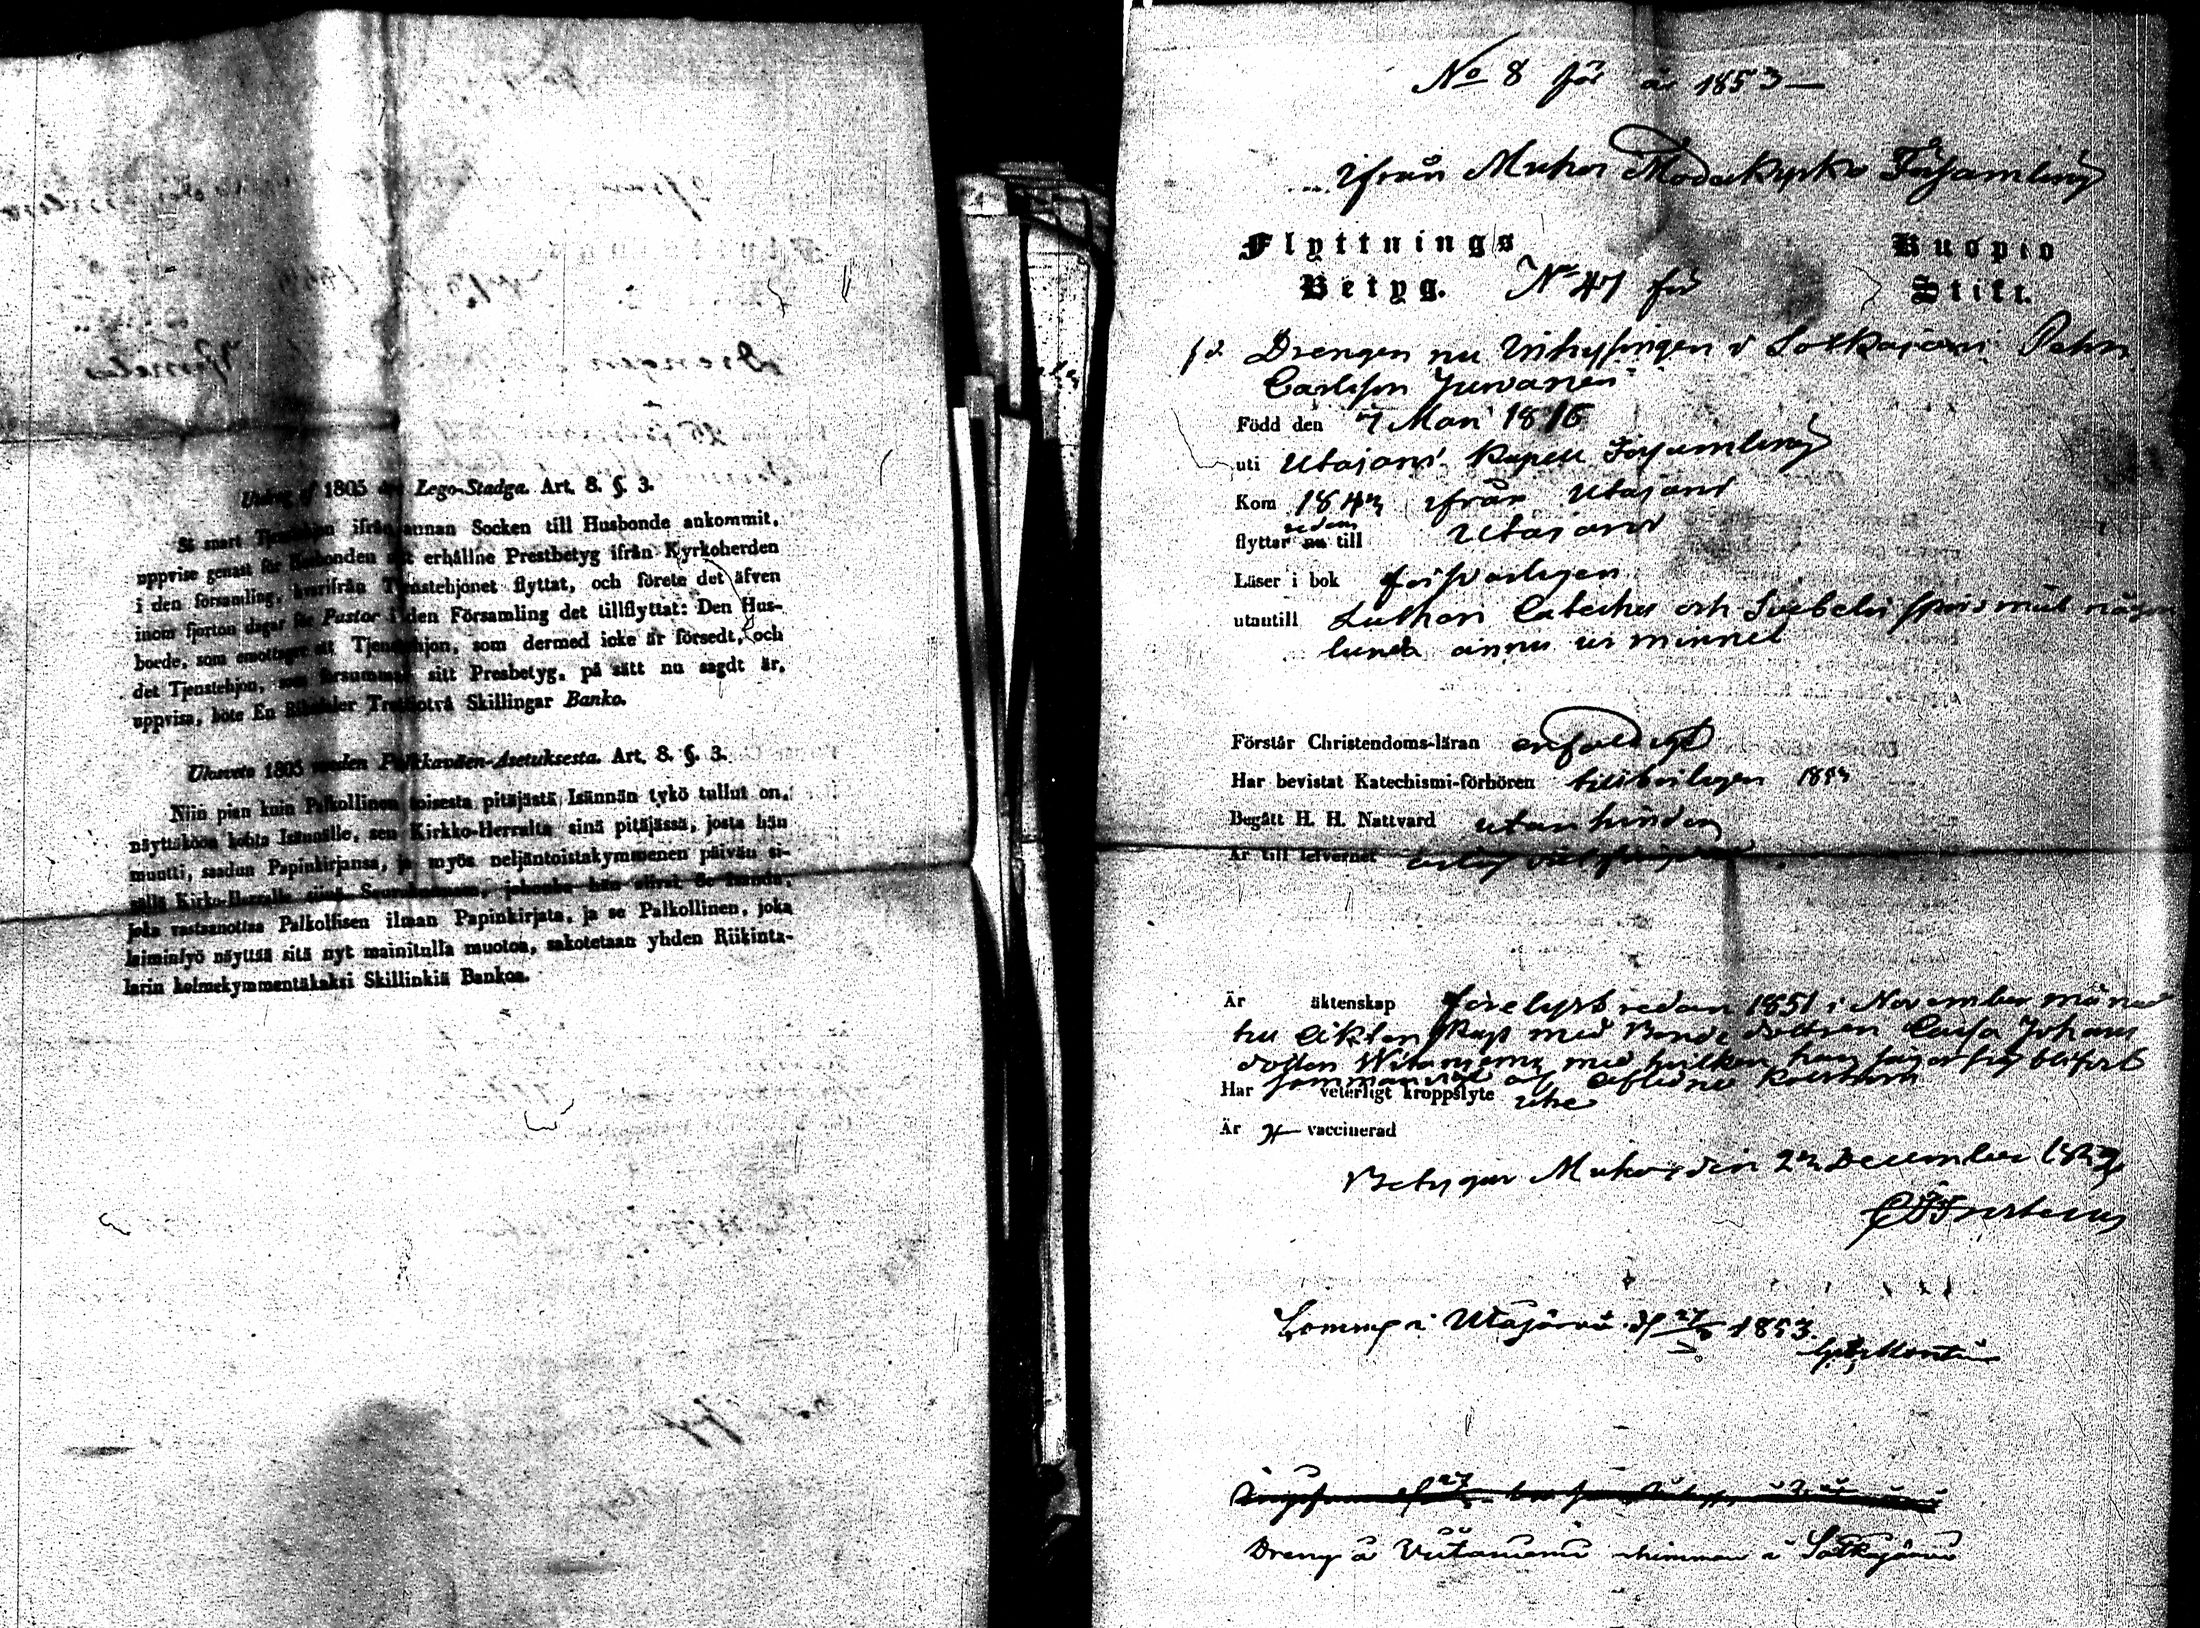 Utdrag af 1805 års Lego-Stadga. Art. 8. §. 3.
Så snart Tjenstehjon ifrån annan Socken till Husbonde ankommit,
uppvise genast för Husbonden sitt erhållne Prestbetyg ifrån Kyrkoherden
i den församling, hvarifrån Tjenstehjonet flyttat, och förete det äfven
inom fjorton dagar för Pastor i den Församling det tillflyttat: Den Hus-
boede, som emottager ett Tjenstehjon, som dermed icke är försedt, och
det Tjenstehjon, som försummar sitt Presbetyg, på sätt nu sagdt är,
uppvisa, böte En Riksdaler Trettiotvå Skillingar Banko.
Ulosveto 1805 vuoden Palkkaväen-Asetuksesta. Art. 8. §. 3.
Niin pian kuin Palkollinen toisesta pitäjästä Isännän tykö tullut on,
näyttäköön kohta Isännälle, sen Kirkko-Herralta sinä pitäjässä, josta hän
muutti, saadun Papinkirjansa, ja myös neljäntoistakymmenen päivän si-
sällä Kirko-Herralle siinä Seurakunnassa, johonka hän siirsi. Se Isändä,
joka vastaanottaa Palkollisen ilman Papinkirjata, ja se Palkollinen, joka
laiminlyö näyttää sitä nyt mainitulla muotoa, sakotetaan yhden Riikinta-
larin kolmekymmentäkaksi Skillinkiä Bankoa.
No 8 för år 1853
ifrån Muhos Moderkyrko Församling
Flyttnings Kuopio
Betyg. No 47 för Stift.
f d Drengen nu Inhysingen i Sotkajärvi Petter
Carlsson Juvanen
Född den 7 Mari 1816
uti Utajärvi Kapell Församling
Kom ifrån Utajärvi
redan
flyttar nu till Utajärvi
Läser i bok försvarligen
utantill Lutheri Cateches och Svebelii spörsmål någor
lunda ännu ur minnet
Förstår Christendoms-läran enfaldigt
Har bevistat Katechismi-förhören
Begått H. H. Nattvard utan hinder
Är till lefvernet
Är äktenskap förelyst redan 1851 i November månad
till Äktenskap med Bonde dottren Caisa Johans
dotter med hvilken han säger sig blifvit
sammanvigd
Har veterligt kroppslyte icke
Är vaccinerad
Betygar Muhos den December
i Utajärvi d 1853.
Dreng å i Sotkajärvi